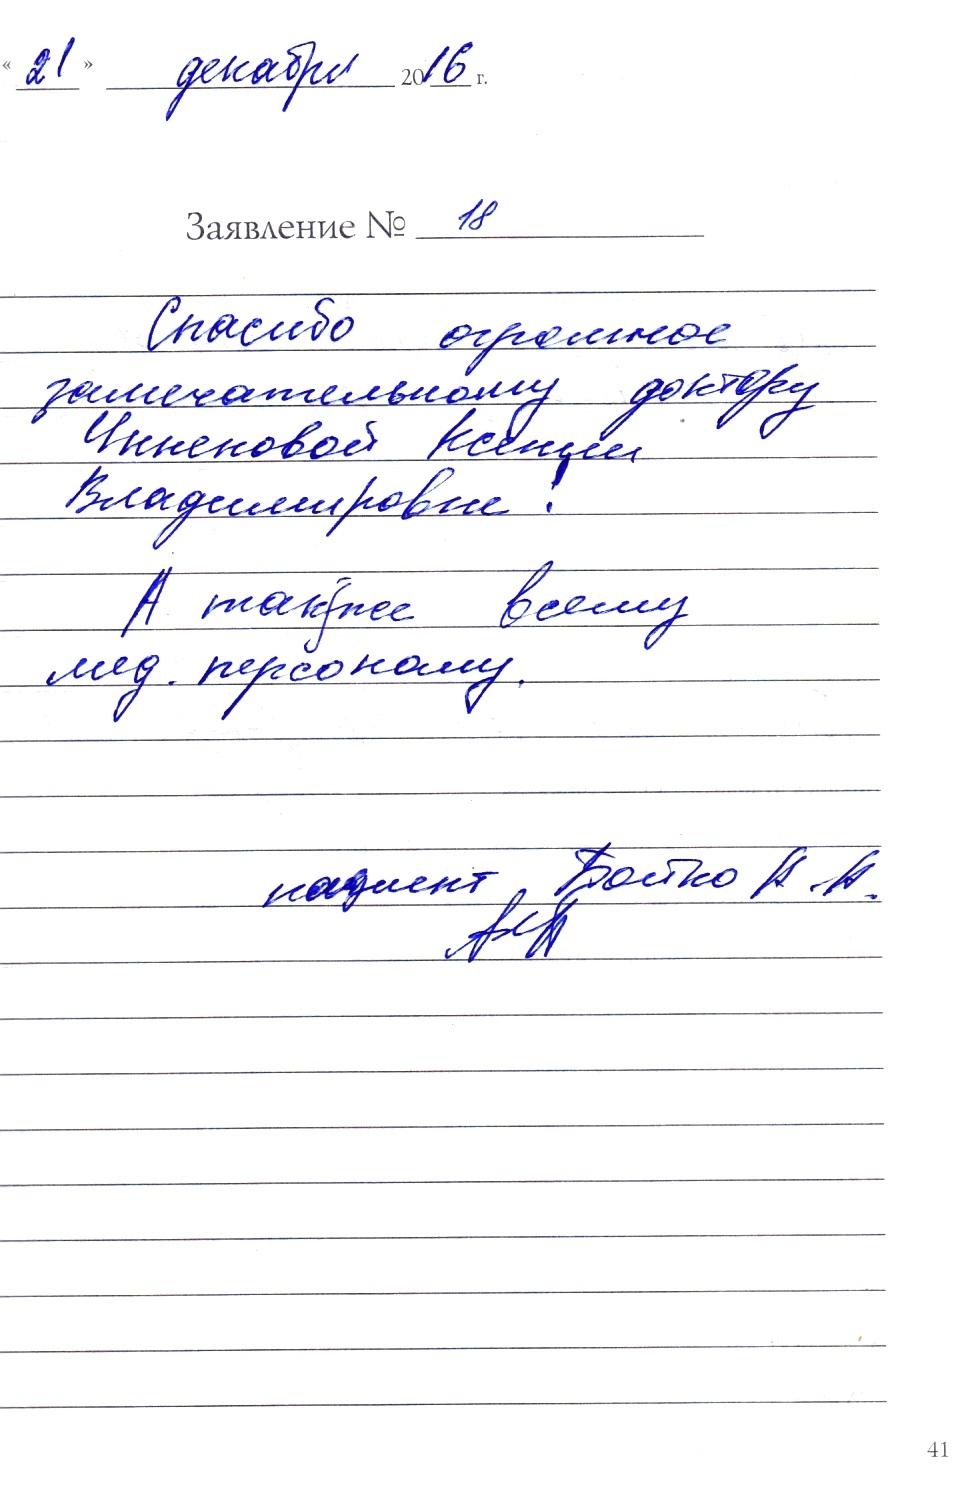 « 21 » декабря 2016 г.
Заявление № 18
Спасибо огромное
замечательному доктору
Ксении
Владимировне!
А также всему
мед. персоналу.
пациент Бойко А. А.
41